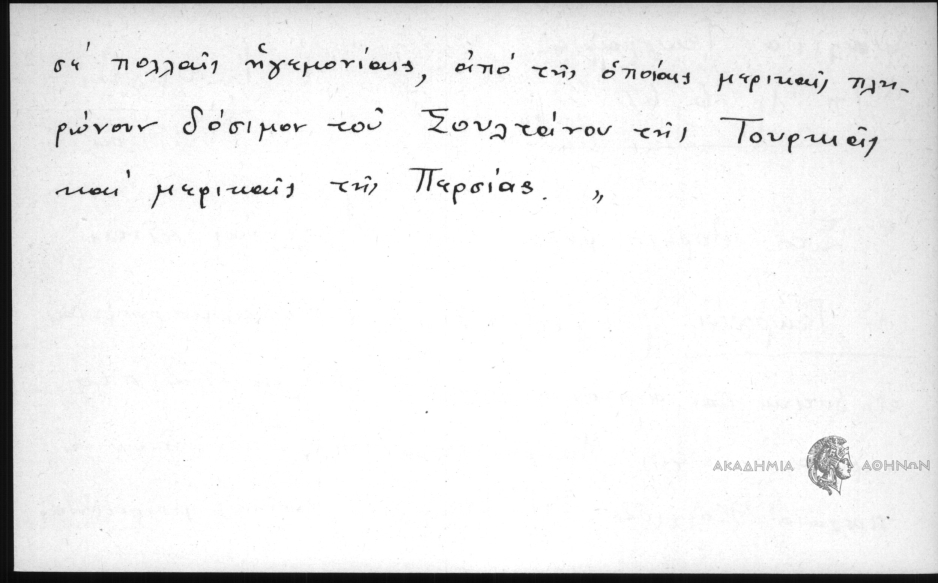 σὲ πολλαῖς ἡγεμονίαις, ἀπό τῆς ὁποίαις μερικαῖς πλη-
ρώνουν δόσιμον τοῦ Σουλτάνου τῆς Τουρκιᾶς
καί μερικαῖς τῆς Περσίας. „
ΑΚΑΔΗΜΙΑ ΑΘΗΝΩΝ